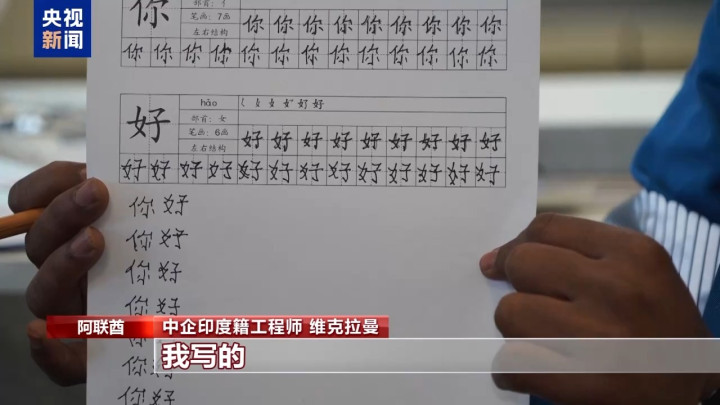 央视
新闻
你
部首：亻
笔画：7画
左右结构
你你你你你你你你你
你你你你你你你你你你你你你
好
hǎo
好
部首：女
笔画：6画
左右结构
好好好好好好好好好
好好好好好好好好好好好好好
你好
你好
你好
你好
你好
你好
阿联酋 中企印度籍工程师 维克拉曼
我写的